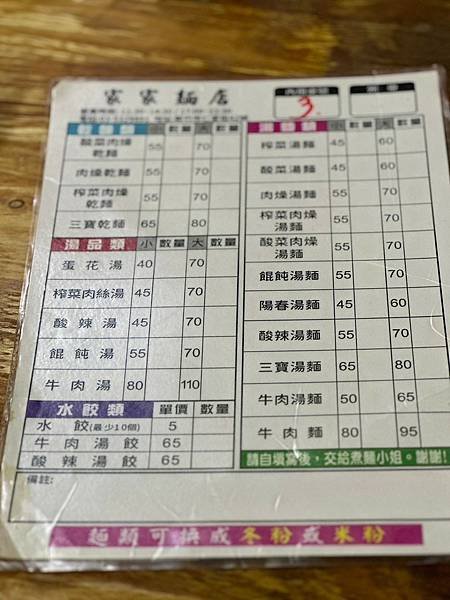 家家麵店
3
乾麵類 小 數量 大 數量
酸菜肉燥乾麵 55 70
肉燥乾麵 55 70
榨菜肉燥乾麵 55 70
三寶乾麵 65 80
湯品類 小 數量 大 數量
蛋花湯 40 70
榨菜肉絲湯 45 70
酸辣湯 45 70
餛飩湯 55 70
牛肉湯 80 110
水餃類 單價 數量
水餃(最少10個) 5
牛肉湯餃 65
酸辣湯餃 65
湯麵類 小 數量 大 數量
榨菜湯麵 45 60
酸菜湯麵 45 60
肉燥湯麵 55 70
榨菜肉燥湯麵 55 70
酸菜肉燥湯麵 55 70
餛飩湯麵 55 70
陽春湯麵 45 60
酸辣湯麵 55 70
三寶湯麵 65 80
牛肉湯麵 50 65
牛肉麵 80 95
請自填寫後，交給煮麵小姐。謝謝!
備註:
麵類可換成冬粉或米粉